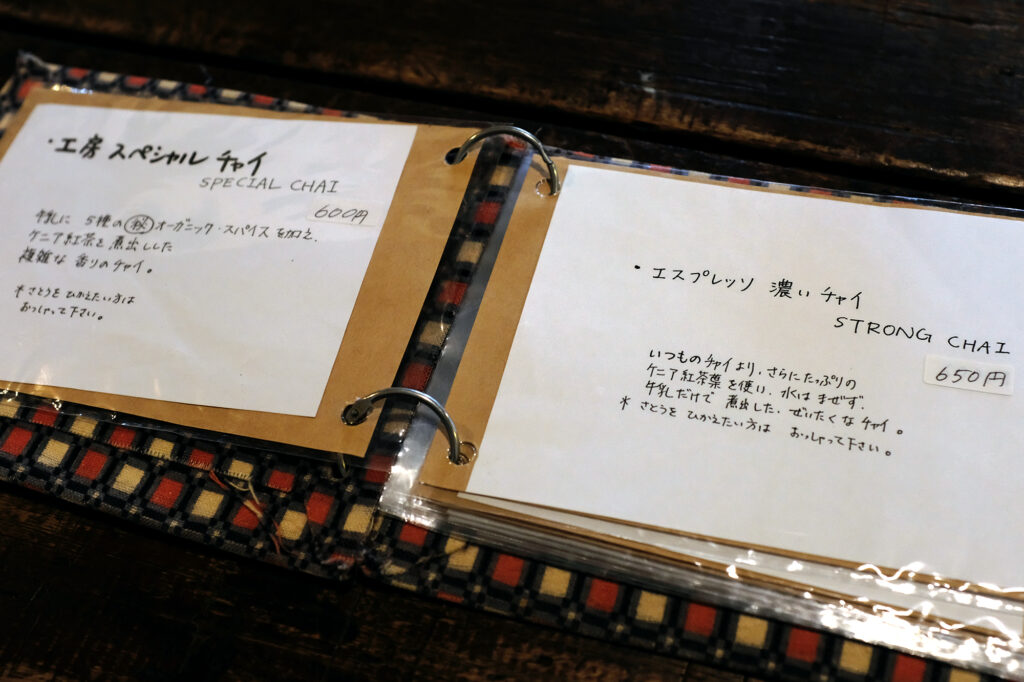 ・工房 スペシャル チャイ
SPECIAL CHAI
600円
牛乳に 5種の㊙オーガニック・スパイスを加え、
ケニア紅茶を煮出しした
複雑な 香りのチャイ。
*さとうを ひかえたい方は
おっしゃって下さい。
・エスプレッソ 濃いチャイ
STRONG CHAI
650円
いつものチャイより、さらにたっぷりの
ケニア紅茶葉を使い、水は まぜず、
牛乳だけで 煮出した、ぜいたくなチャイ。
*さとうを ひかえたい方は おっしゃって下さい。